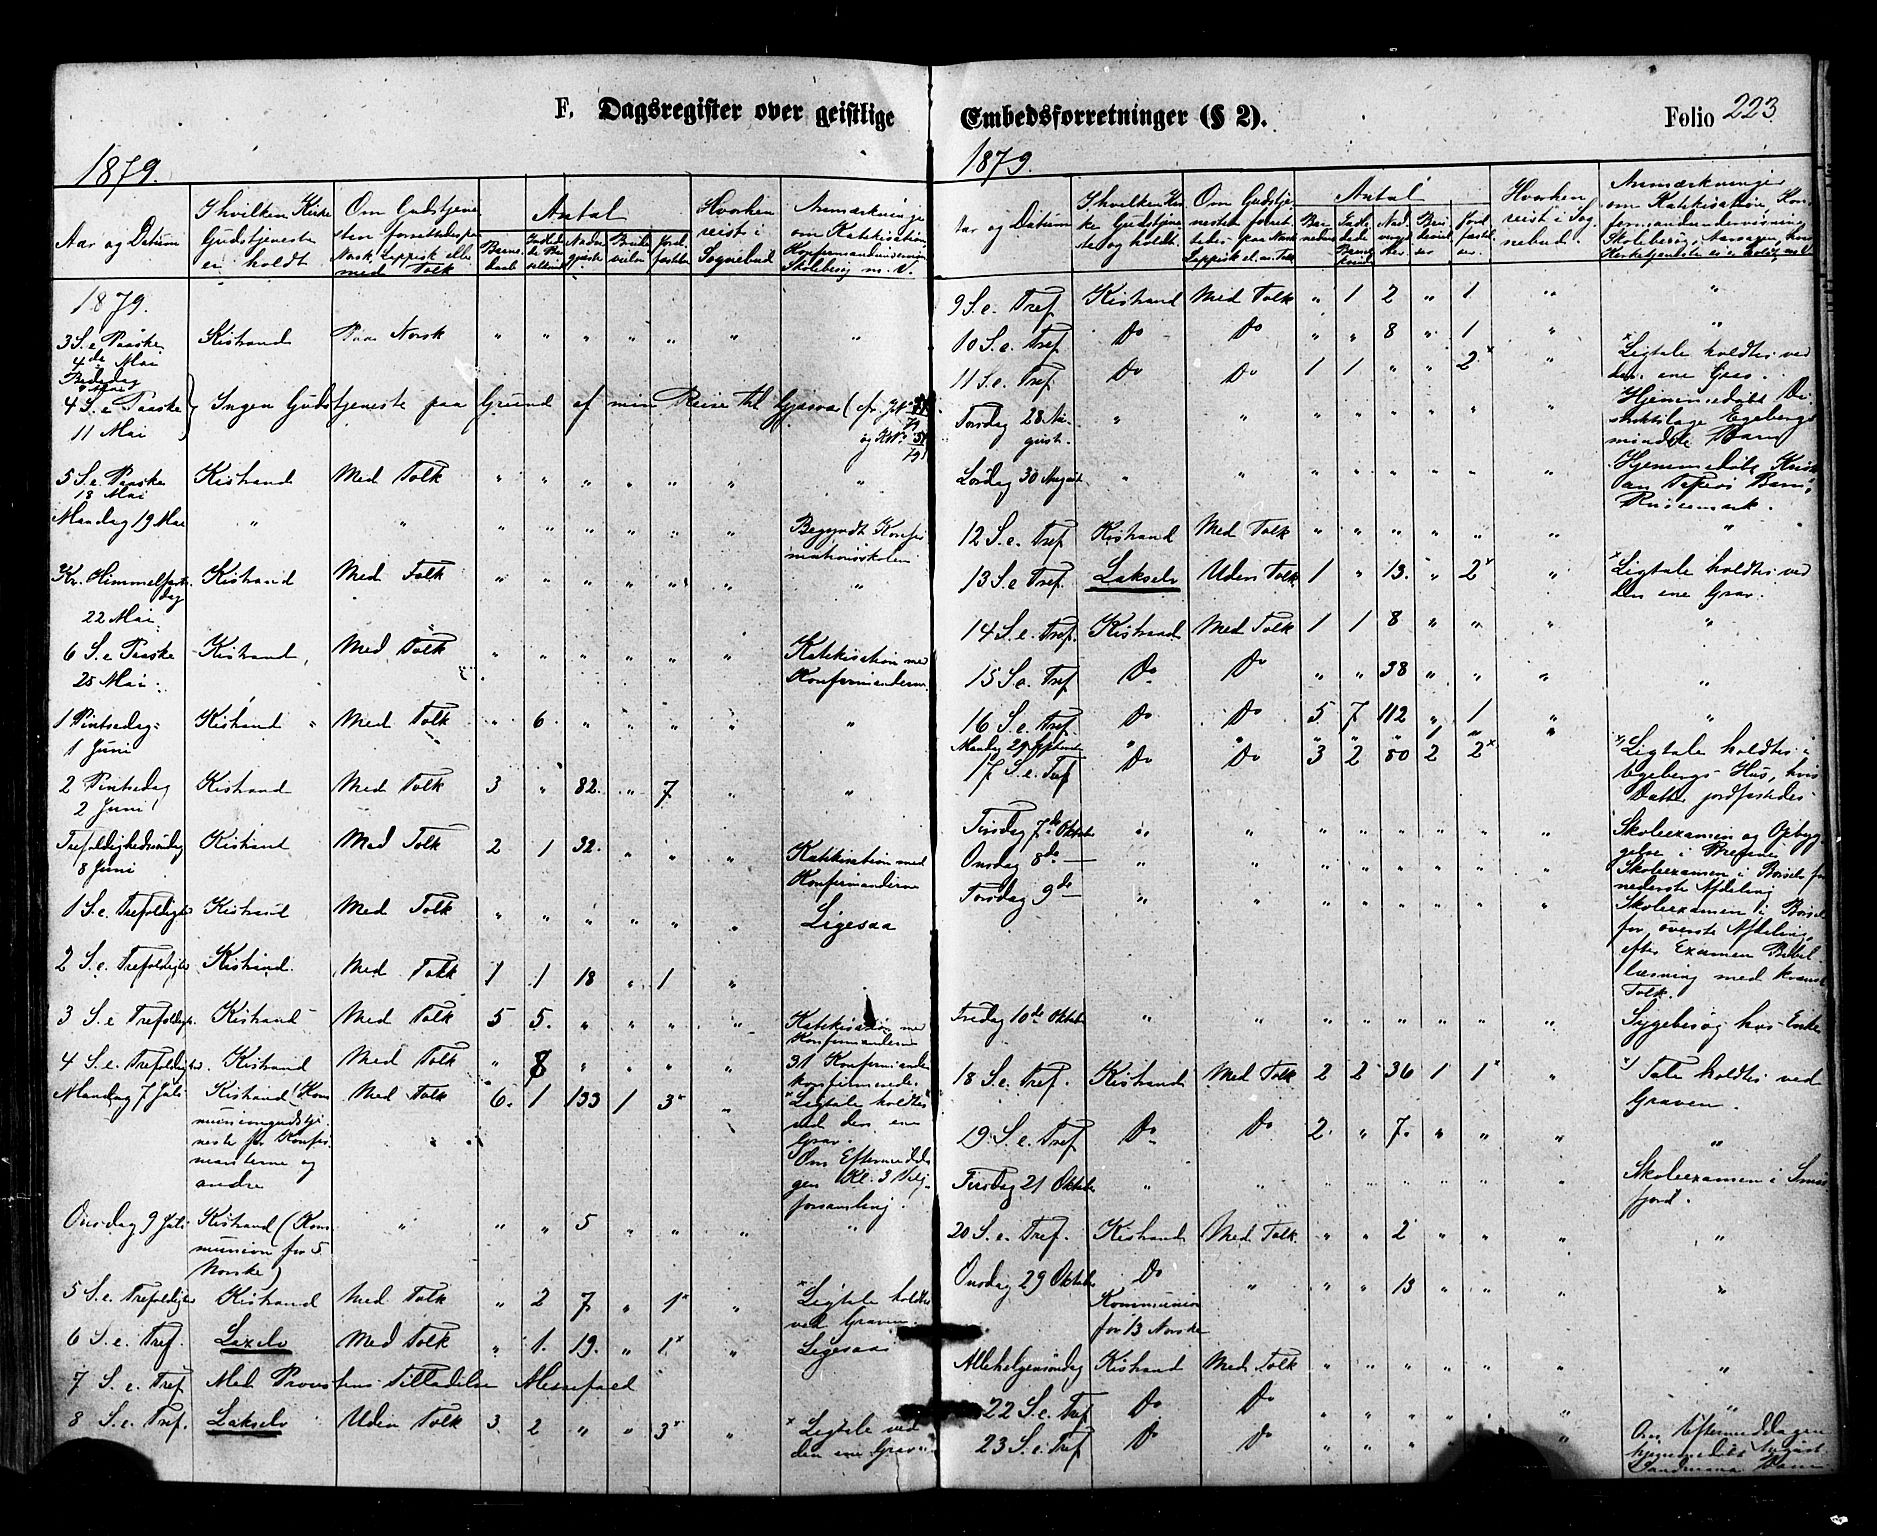 F. Dagsregister over geistlige
1879.
Aar og Datum
I hvilken Kirke Gudstjeneste er holdt
Om Gudstjenesten forrettedes paa Norsk, Lappisk eller med Tolk
Antal
Barnedaab
Nadvergjæster
Hvorhen reist i Sognebud
Anmærkninger om Katekisation, Konfirmandundervisning, Skolebesøg m. V.
1879.
3 S. e. Paaske 4de Mai Kistrand Paa Norsk " " " " " " "
Bededag
4 S. e. Paaske 11 Mai } Ingen Gudstjeneste paa Grund af min Reise til Gjesvær
5 S. e. Paaske 18 Mai Kistrand Med Tolk " " " " " " "
Mandag 19 Mai " " " " " " " " Begyndt Konfirmationsskolen
Kr. Himmelfartsdag 22 Mai Kistrand Med Tolk " " " " " " "
6 S. e. Paaske 25 Mai Kistrand Med Tolk " " " " " " Katekisation med Konfirmanderne
1 Pintsedag 1 Juni Kistrand Med Tolk " 6 " " " " "
2 Pintsedag 2 Juni Kistrand Med Tolk 3 " 82. " 7 " "
Trefoldighedssøndag 8 Juni Kistrand Med Tolk 2 1 32. " " " Katekisation med Konfirmanderne
1 S. e. Trefoldighed Kistrand Med Tolk " " " " " " Ligesaa
2 S. e. Trefoldighed Kistrand Med Tolk 1 1 18 " 1 "
3 S. e. Trefoldigh. Kistrand Med Tolk 5 5. " " " " Katekisation med Konfirmanderne
4 S. e. Trefoldighed Kistrand Med Tolk " 8 " " " 31 Konfirmander konfirmerede.
Mandag 7 Juli Kistrand (Kommuniongudstjeneste for Konfirmanterne og andre Med Tolk 6. 1 133 1 3x " x Ligtale holdtes ved den ene Grav.
Om Eftermiddagen Kl. 3
Onsdag 9 Juli Kistrand (Kommunion for 5 Norske) " " " 5 " " " "
5 S. e. Trefoldighed Kistrand Med Tolk " 2 7 " 1x " x Ligtale holdtes ved Graven.
6 S. e. Tref. Laxelv Med Tolk " 1. 19. " 1x " Ligesaa
7 S. e. Tref Med Provstens Tilladelse Messefald
8 S. e. Tref. Lakselv Uden Tolk 3. 2 " " 3x " x Ligtale ved den ene Grav
Embedsforretninger (§ 2).
Folio 223
1879.
Aar og Datum
I hvilken Kirke Gudstjeneste og holdt.
Antal
Hvorhen reist i Sognebud.
Anmærkninger om Katekisation, Konfirmandundervisning, Skolebesøg
9 S. e. Tref Kistrand Med Tolk " 1 2 " 1 " "
10 S. e. Tref. Do Do " " 8 " 1 " "
11 S. e. Tref. Do Do 1 1 " " 2x " x Ligtale holdtes ved den ene Grav.
Torsdag 28 August. " " " " " " " " Hjemmedøbt Distriktslæge Egebergs Barn
Lørdag 30 August " " " " " " " " Hjemmedøbt Barn
12 S. e. Tref Kistrand Med Tolk " " " " " " "
13 S. e. Tref. Lakselv Uden Tolk 1 " 13. " 2x " x Ligtale holdtes ved den ene Grav.
14 S. e. Tref. Kistrand Med Tolk 1 1 8 " " " "
15 S. e. Tref Do Do " " 38 " " " "
16 S. e. Tref. Do Do 5 7 112 " 1 " "
Mandag 29 September " " " " " 1 " "
17 S. e. Tref Do Do 3 2 50 2 2x x) Ligtale holdtes i Egebergs Hus, hvis Datter jordfæstedes
Tirsdag 7de Oktober " " " " " " " " Skoleexamen og Opbyggelse i
Onsdag 8de — " " " " " " " " Skoleexamen i Børselv for nederste Afdeling
Torsdag 9de — " " " " " " " " Skoleexamen i Børselv for øverste Afdeling, efter Examen Bibellæsning med kvænsk Tolk.
Fredag 10de Oktober " " " " " " " " Sygebesøg hos Enke
18 S. e. Tref. Kistrand Med Tolk 2 2 36 1 1x " x) Tale holdtes ved Graven.
19 S. e. Tref Do Do 2. " 7. " " " "
Tirsdag 21 Oktober " " " " " " " " Skoleexamen i Smørfjord.
20 S. e. Tref. Kistrand Med Tolk " " 2 " " " "
Onsdag 29 Oktober Do Kommunion for 13 Norske " " " 13 " " " "
Allehelgensøndag Kistrand Med Tolk " " " " " " "
22 S. e. Tref Do Do " " " " " " "
23 S. e. Tref Do Do " " " " " " Om Eftermiddagen hjemmedøbt August Barn